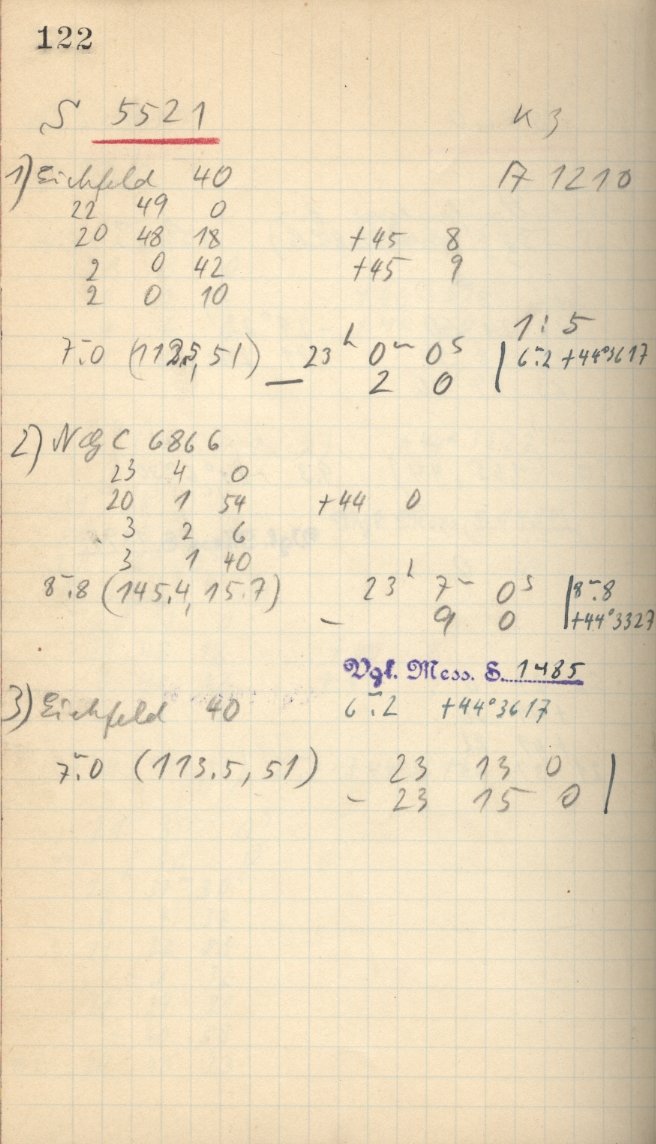 122
S 5521 K 3
1) Eichfeld 40 A 1210
22 49 0
20 48 18 +45 8
2 0 42 +45 9
2 0 10
1 : 5
7ᵐ.0 (112.5, 51) 23ʰ 0ᵐ 0ˢ | 6ᵐ.2 +44°3617
— 2 0
2) NGC 6866
23 4 0
20 1 54 +44 0
3 2 6
3 1 40
8ᵐ.8 (145.4, 15.7) 23ʰ 7ᵐ 0ˢ | 8ᵐ.8
– 9 0 | +44°3327
Vgl. Mess. S. 1485
3) Eichfeld 40 6ᵐ.2 +44°3617
7ᵐ.0 (113.5, 51) 23 13 0
– 23 15 0 |